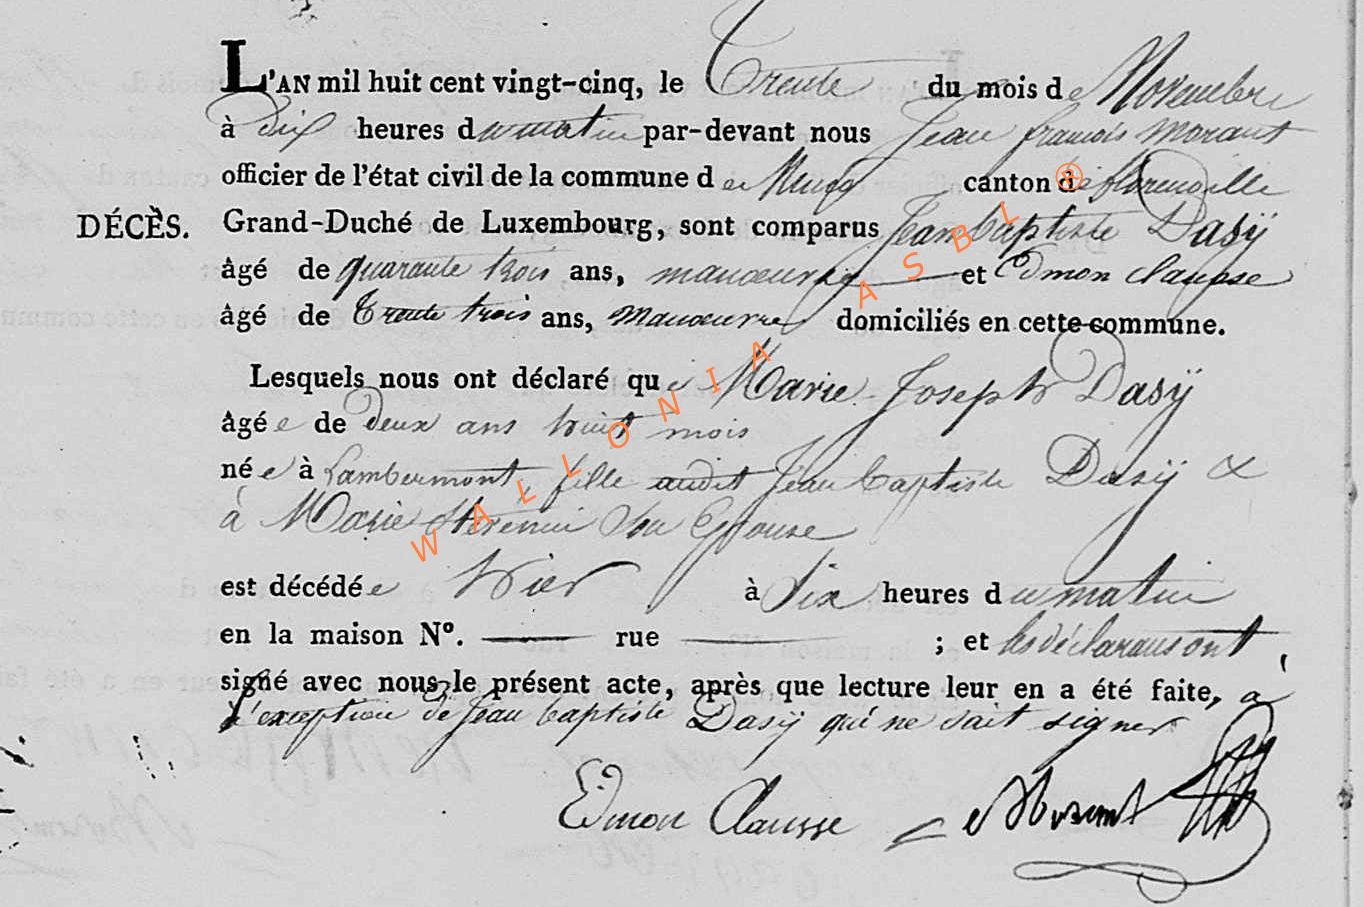 L'AN mil huit cent vingt-cinq, le Trente du mois de Novembre
à dix heures du matin par-devant nous Jean francois Morant
officier de l'état civil de la commune de canton de florenville
DÉCÈS. Grand-Duché de Luxembourg, sont comparus Jean baptiste Dasÿ
âgé de quarante trois ans, manœuvre et Edmon Clausse
âgé de Trente trois ans, Manœuvre domiciliés en cette commune.
Lesquels nous ont déclaré que Marie Joseph Dasÿ
âgée de deux ans huit mois
née à Lambermont, fille audit Jean baptiste Dasÿ &
à Marie Son Epouse
est décédée hier à Six heures du matin
en la maison N°. rue ; et les déclarans ont
signé avec nous le présent acte, après que lecture leur en a été faite, a
l'exception de Jean baptiste Dasÿ qui ne sait signer
Edmon Clausse Morant
WALLONIA ASBL ®